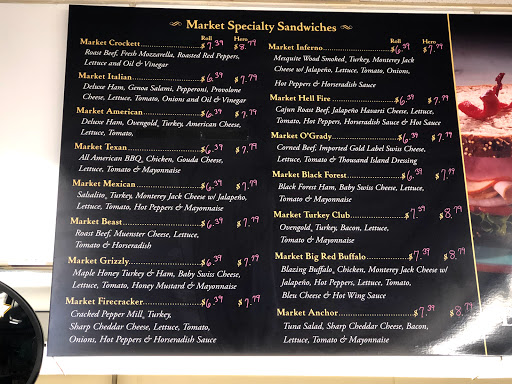 Market Specialty Sandwiches
Roll Hero
Market Crockett $7.39 $8.79
Roast Beef, Fresh Mozzarella, Roasted Red Peppers,
Lettuce and Oil & Vinegar
Market Italian $6.39 $7.79
Deluxe Ham, Genoa Salami, Pepperoni, Provolone
Cheese, Lettuce, Tomato, Onions and Oil & Vinegar
Market American $6.39 $7.79
Deluxe Ham, Ovengold, Turkey, American Cheese,
Lettuce, Tomato,
Market Texan $6.39 $7.79
All American BBQ, Chicken, Gouda Cheese,
Lettuce, Tomato & Mayonnaise
Market Mexican $6.39 $7.79
Salsalito, Turkey, Monterey Jack Cheese w/ Jalapeño,
Lettuce, Tomato, Hot Peppers & Mayonnaise
Market Beast $6.39 $7.79
Roast Beef, Muenster Cheese, Lettuce,
Tomato & Horseradish
Market Grizzly $6.39 $7.79
Maple Honey Turkey & Ham, Baby Swiss Cheese,
Lettuce, Tomato, Honey Mustard & Mayonnaise
Market Firecracker $6.39 $7.79
Cracked Pepper Mill, Turkey,
Sharp Cheddar Cheese, Lettuce, Tomato,
Onions, Hot Peppers & Horseradish Sauce
Roll Hero
Market Inferno $6.39 $7.79
Mesquite Wood Smoked, Turkey, Monterey Jack
Cheese w/ Jalapeño, Lettuce, Tomato, Onions,
Hot Peppers & Horseradish Sauce
Market Hell Fire $6.39 $7.79
Cajun Roast Beef, Jalapeño Havarti Cheese, Lettuce,
Tomato, Hot Peppers, Horseradish Sauce & Hot Sauce
Market O'Grady $6.39 $7.79
Corned Beef, Imported Gold Label Swiss Cheese,
Lettuce, Tomato & Thousand Island Dressing
Market Black Forest $6.39 $7.79
Black Forest Ham, Baby Swiss Cheese, Lettuce,
Tomato & Mayonnaise
Market Turkey Club $7.39 $8.79
Ovengold, Turkey, Bacon, Lettuce,
Tomato & Mayonnaise
Market Big Red Buffalo $7.39 $8.79
Blazing Buffalo, Chicken, Monterey Jack Cheese w/
Jalapeño, Hot Peppers, Lettuce, Tomato,
Bleu Cheese & Hot Wing Sauce
Market Anchor $7.39 $8.79
Tuna Salad, Sharp Cheddar Cheese, Bacon,
Lettuce, Tomato & Mayonnaise